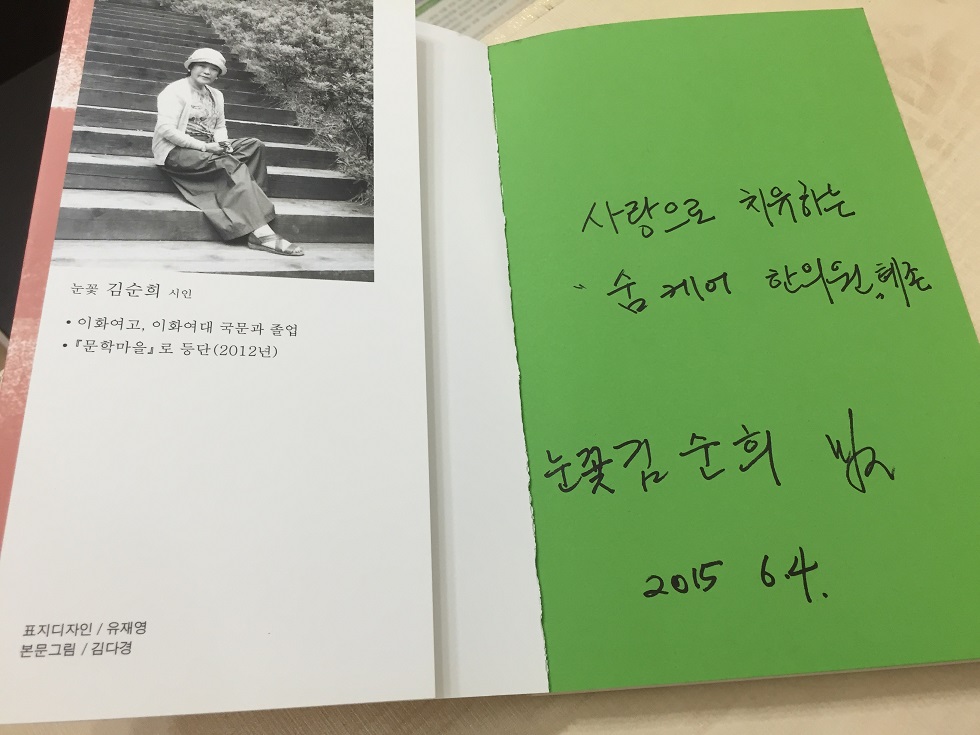 눈꽃 김순희 시인
• 이화여고, 이화여대 국문과 졸업
• 『문학마을』로 등단(2012년)
표지디자인 / 유재영
본문그림 / 김다경
사랑으로 치유하는
숨케어 한의원, 혜존
눈꽃 김순희
2015 6.4.